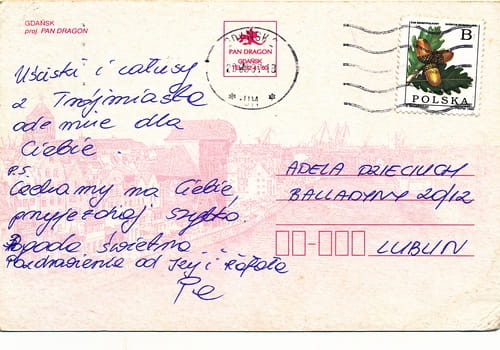 GDAŃSK
proj. PAN DRAGON
PAN DRAGON
GDAŃSK
B
POLSKA
Uściski i całusy
z Trójmiasta
ode mnie dla
Ciebie.
P.S.
Czekamy na Ciebie,
przyjeżdżaj szybko.
Pogoda świetna
Pozdrowienia od Jej i Rafała
ADELA DZIECIUCH
BALLADYNY 20/12
LUBLIN